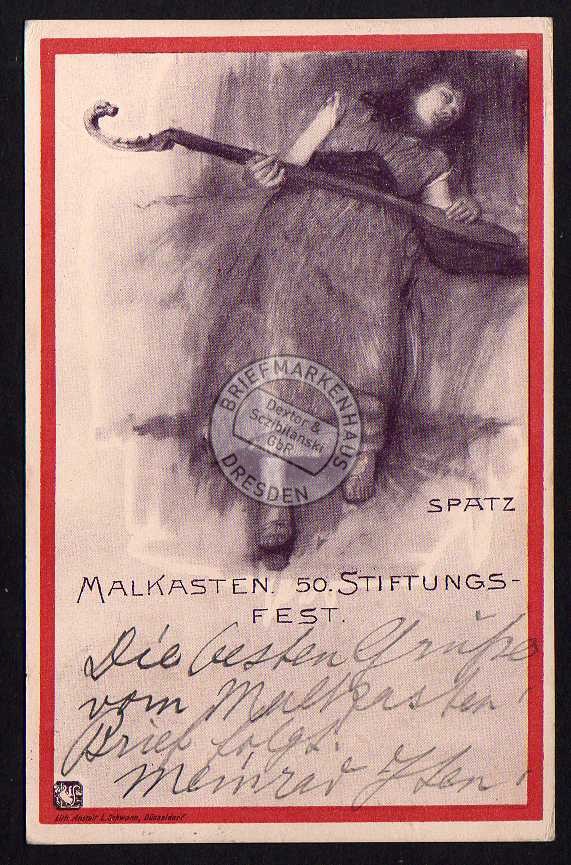 BRIEFMARKENHAUS
Dexter &
Sczibilanski
GbR
DRESDEN
SPATZ
MALKASTEN. 50. STIFTUNGS-
FEST.
Die besten Grüße
vom Malkasten!
Brief folgt.
Meinrad
Lith. Anstalt L. Schwann, Düsseldorf